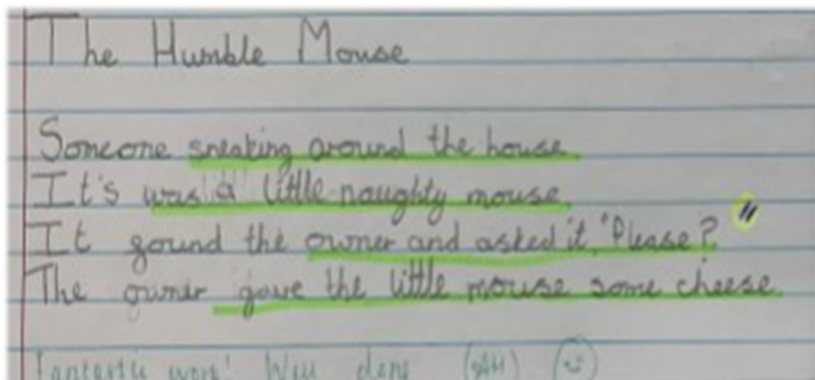 The Humble Mouse
Someone sneaking around the house
It's was a little naughty mouse.
It gound the owner and asked it, "Please?"
The owner gave the little mouse some cheese.
fantastic work! Well done (AH)